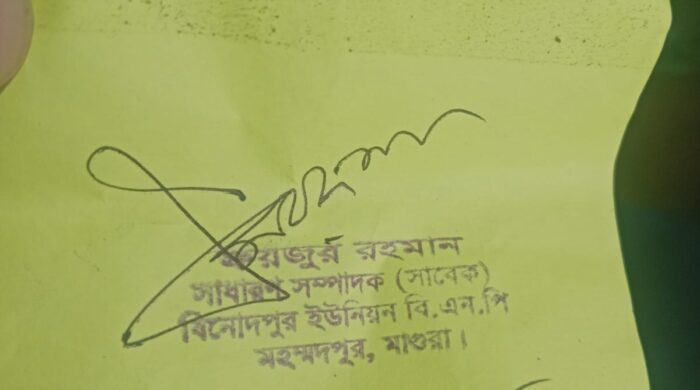 রহমান
সাধারণ সম্পাদক (সাবেক)
বিনোদপুর ইউনিয়ন বি.এন.পি
মহম্মদপুর, মাগুরা।